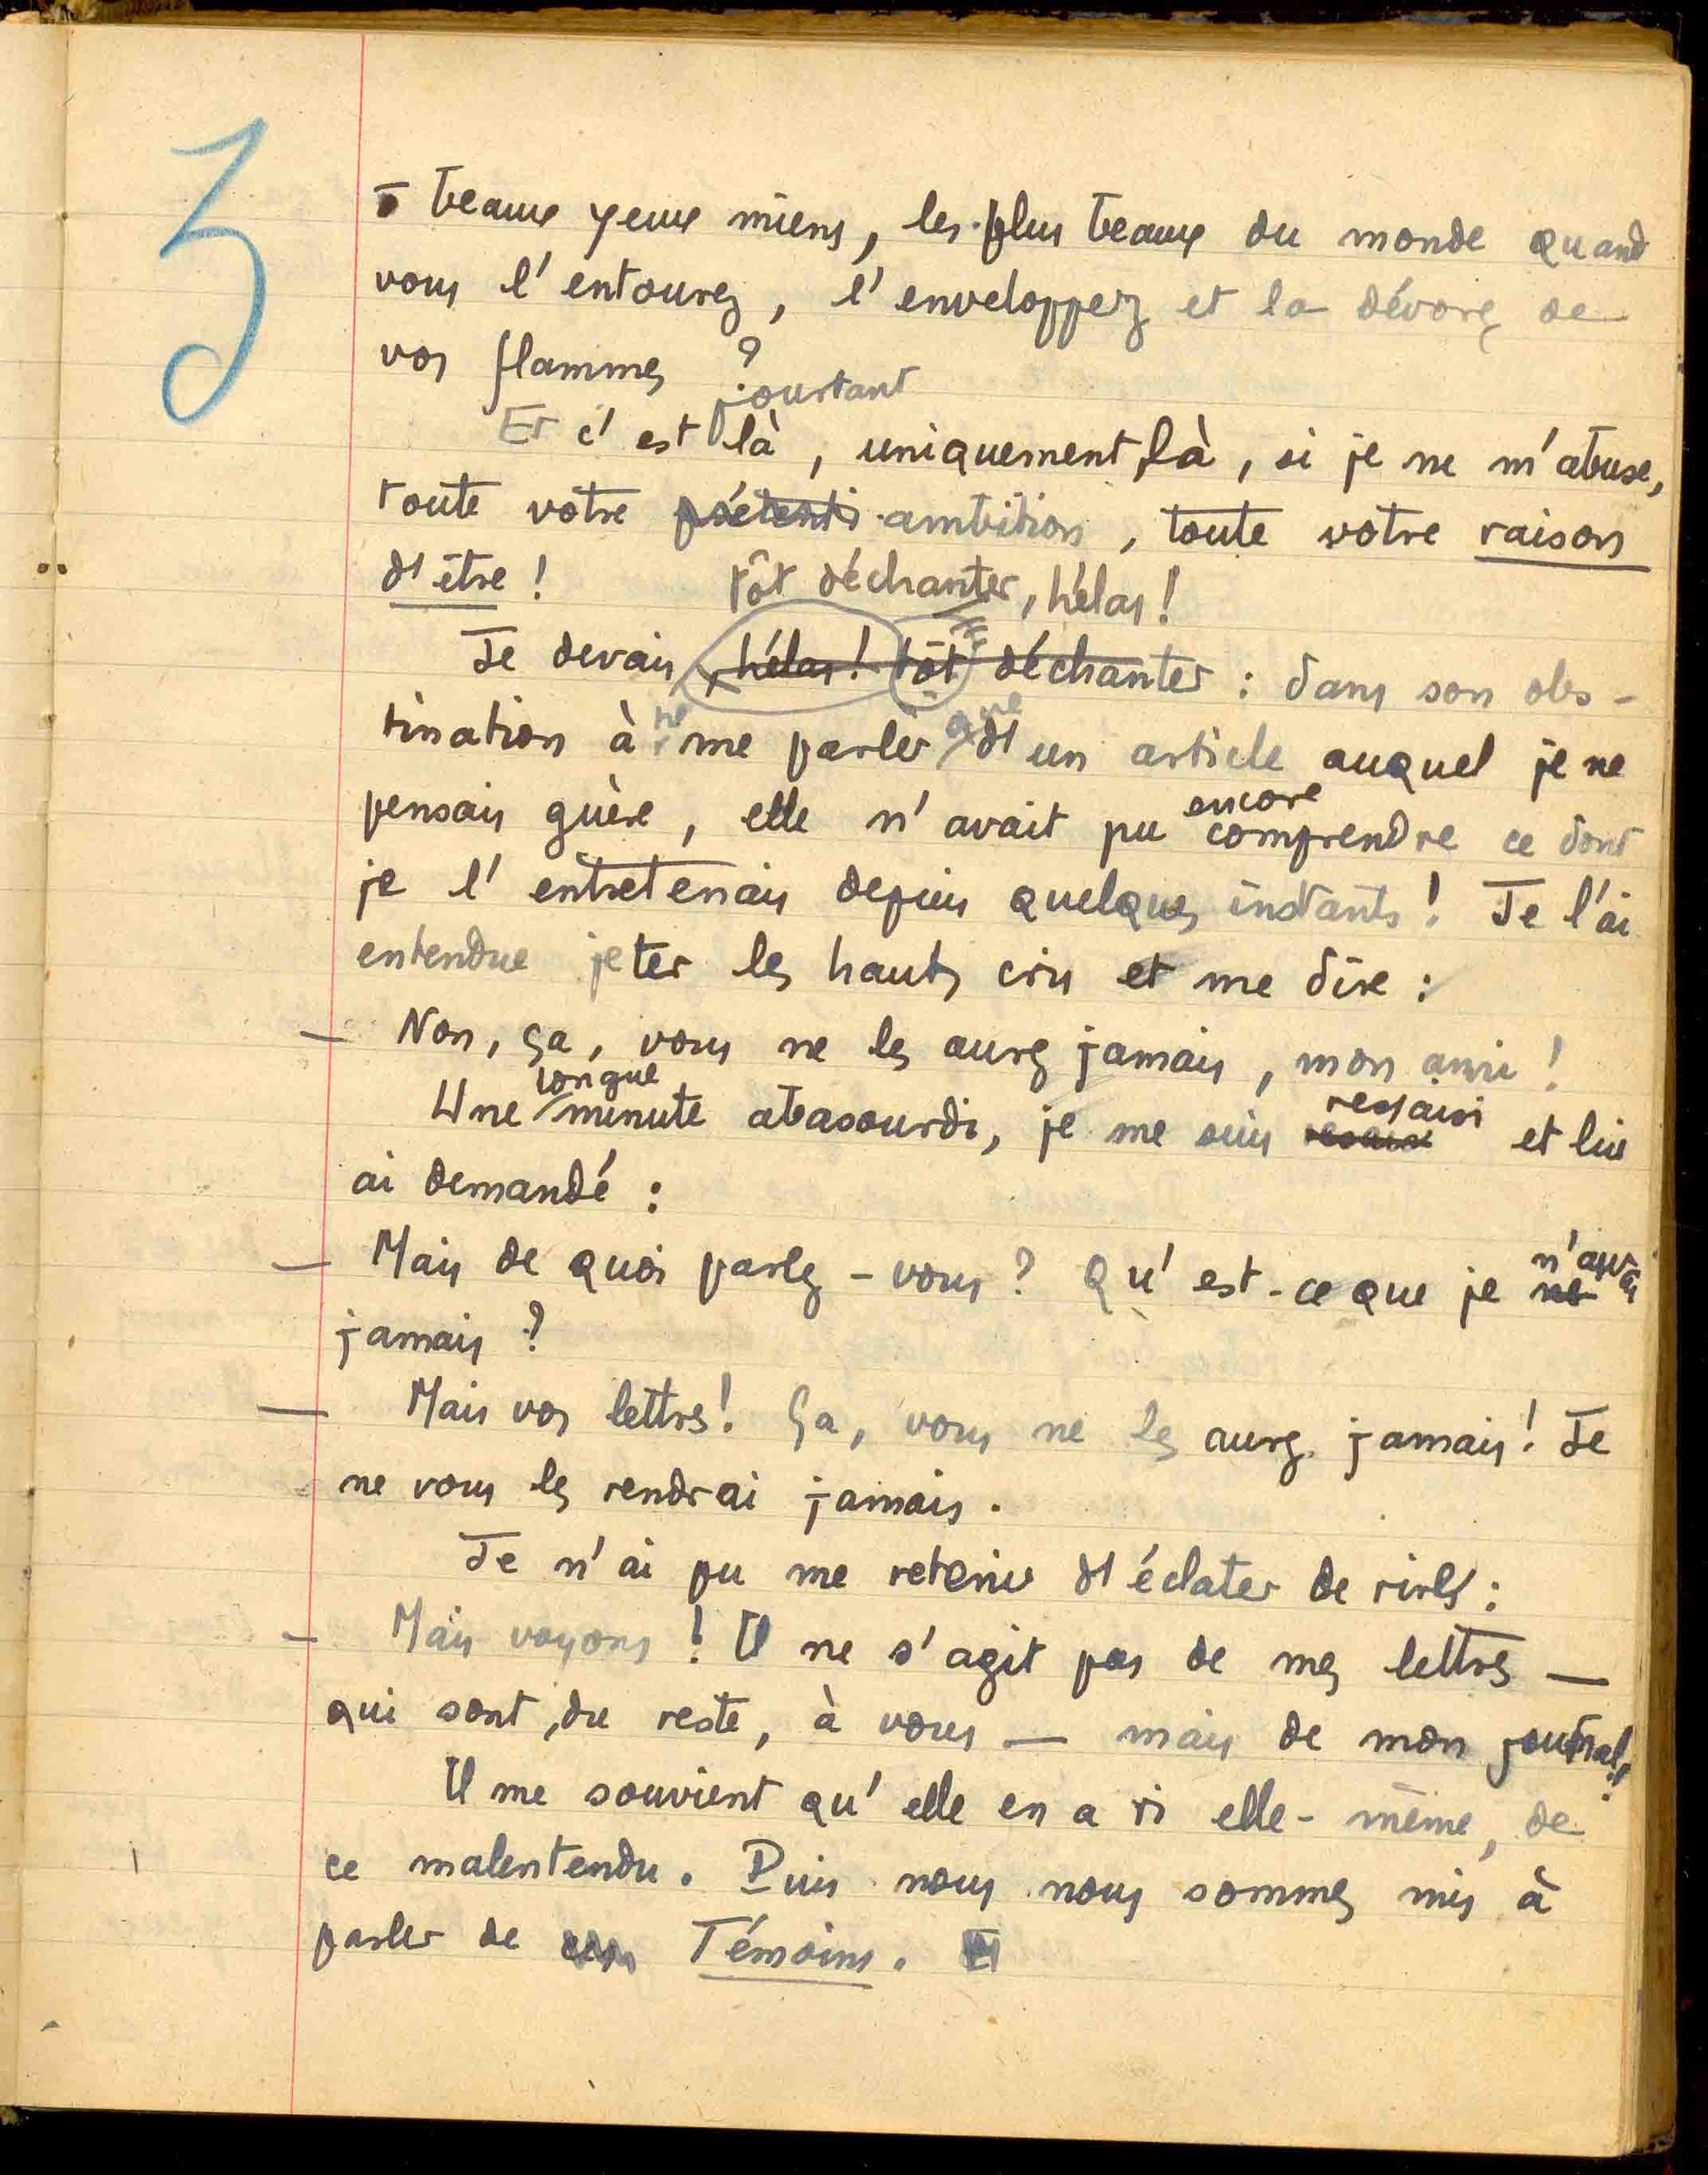 3
ô beaux yeux miens, les plus beaux du monde quand
vous l'entourez, l'enveloppez et la dévorez de
vos flammes ?
pourtant
Et c'est là, uniquement là, si je ne m'abuse,
toute votre prétenti ambition, toute votre raison
d'être !
tôt déchanter, hélas !
Je devais, hélas ! tôt déchanter : dans son obs-
ne que
tination à me parler d'un article auquel je ne
encore
pensais guère, elle n'avait pu comprendre ce dont
je l'entretenais depuis quelques instants ! Je l'ai
entendue jeter les hauts cris et me dire :
— Non, ça, vous ne les aurez jamais, mon ami !
longue ressaisi
Une minute abasourdi, je me suis et lui
ai demandé :
n'aurai
— Mais de quoi parlez-vous ? Qu'est-ce que je ne
jamais ?
— Mais vos lettres ! Ça, vous ne les aurez jamais ! Je
ne vous les rendrai jamais.
Je n'ai pu me retenir d'éclater de rires :
— Mais voyons ! Il ne s'agit pas de mes lettres —
qui sont, du reste, à vous — mais de mon journal !
Il me souvient qu'elle en a ri elle-même, de
ce malentendu. Puis nous nous sommes mis à
parler de Témoins.